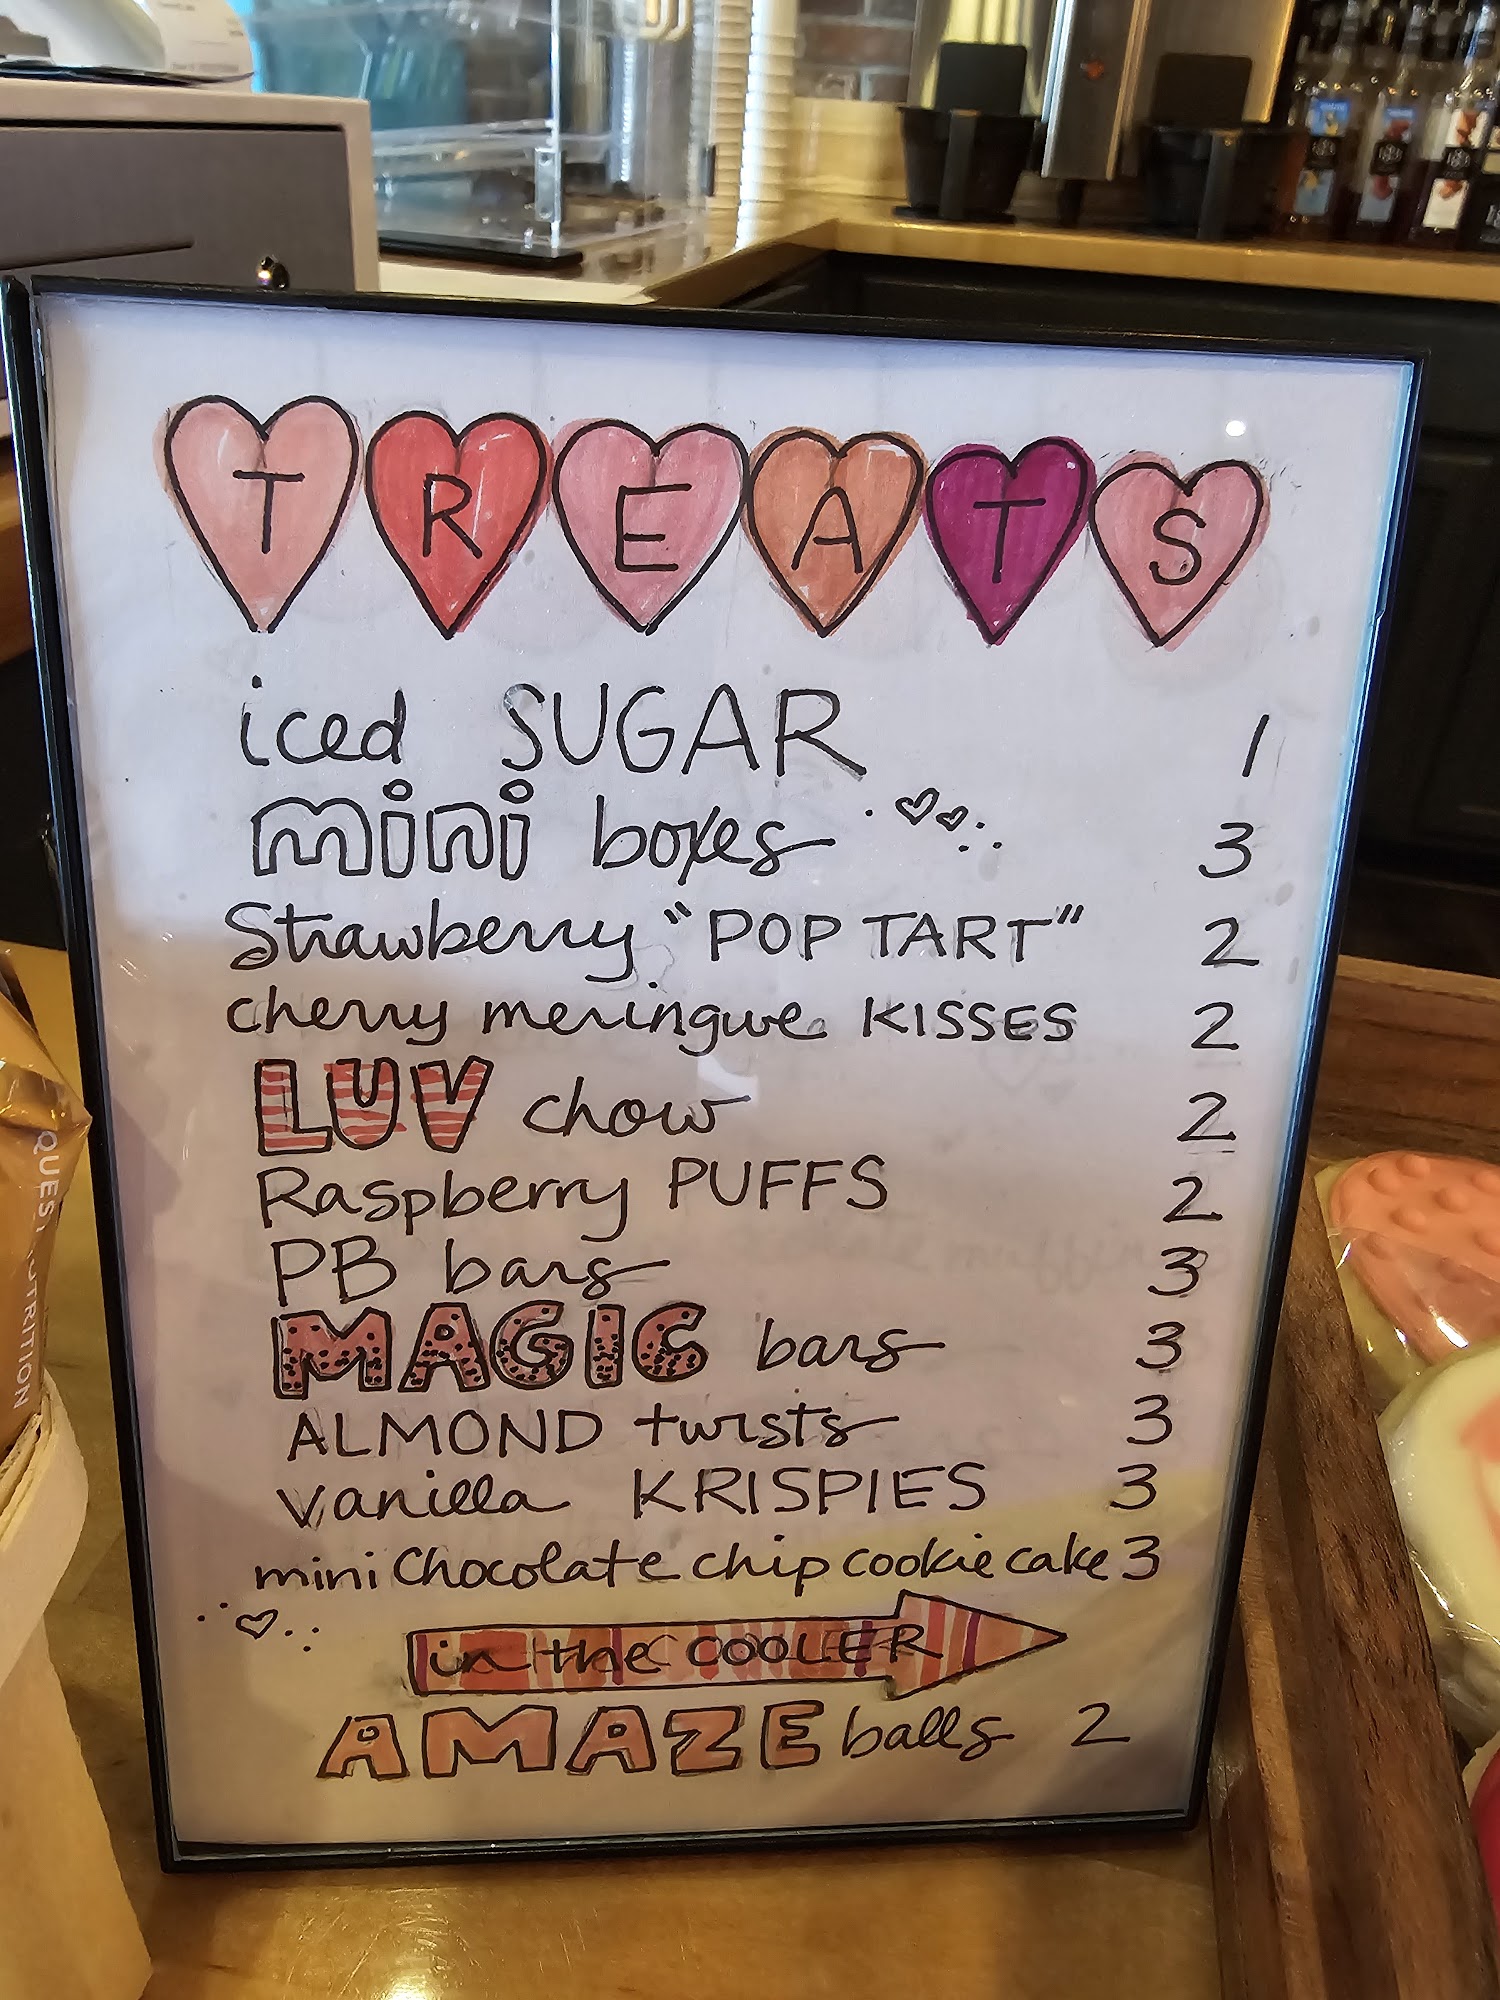 TREATS
iced SUGAR 1
mini boxes 3
Strawberry "POP TART" 2
cherry meringue KISSES 2
LUV chow 2
Raspberry PUFFS 2
PB bars 3
MAGIC bars 3
ALMOND twists 3
vanilla KRISPIES 3
mini Chocolate chip cookie cake 3
in the COOLER
AMAZE balls 2
QUEST NUTRITION